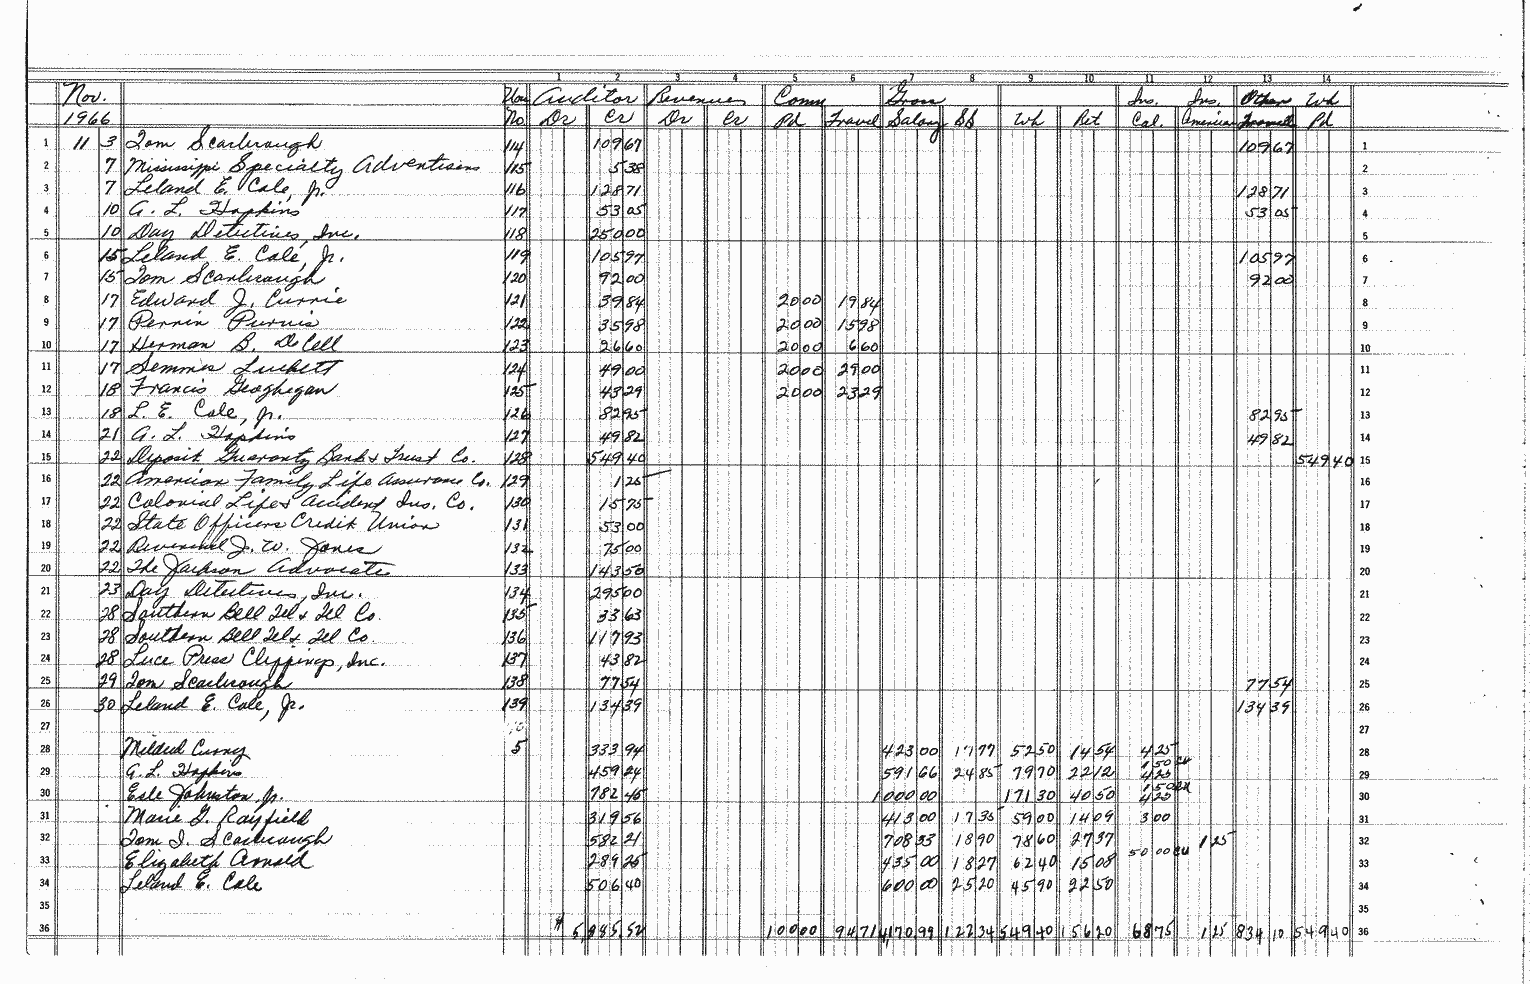 1 2 3 4 5 6 7 8 9 10 11 12 13 14
Nov. Vou Auditor Revenues Comm Gross Ins. Ins. Other Wh
1966 No Dr Cr Dr Cr Pd Travel Salary SS Wh Ret Cal. American Travel Pd
1 11 3 Tom Scarbrough 114 109 67 109 67 1
2 7 Mississippi Specialty Advertisers 115 5 38 2
3 7 Leland E. Cole, Jr. 116 128 71 128 71 3
4 10 A. L. Hopkins 117 53 05 53 05 4
5 10 Day Detectives, Inc. 118 250 00 5
6 15 Leland E. Cole, Jr. 119 105 97 105 97 6
7 15 Tom Scarbrough 120 92 00 92 00 7
8 17 Edward J. Currie 121 39 84 20 00 19 84 8
9 17 Perrin Purvis 122 35 98 20 00 15 98 9
10 17 Herman B. DeCell 123 26 60 20 00 6 60 10
11 17 Semmes Luckett 124 49 00 20 00 29 00 11
12 18 Francis Geoghegan 125 43 29 20 00 23 29 12
13 18 L. E. Cole, Jr. 126 82 95 82 95 13
14 21 A. L. Hopkins 127 49 82 49 82 14
15 22 Deposit Guaranty Bank & Trust Co. 128 549 40 549 40 15
16 22 American Family Life Assurance Co. 129 1 25 16
17 22 Colonial Life & Accident Ins. Co. 130 15 75 17
18 22 State Officers Credit Union 131 53 00 18
19 22 Reverend J. W. Jones 132 75 00 19
20 22 The Jackson Advocate 133 143 50 20
21 23 Day Detectives, Inc. 134 295 00 21
22 28 Southern Bell Tel & Tel Co. 135 33 63 22
23 28 Southern Bell Tel & Tel Co. 136 117 93 23
24 28 Luce Press Clippings, Inc. 137 43 82 24
25 29 Tom Scarbrough 138 77 54 77 54 25
26 30 Leland E. Cole, Jr. 139 134 39 134 39 26
27 27
28 Mildred Curry 5 333 94 423 00 17 77 52 50 14 54 4 25 28
29 A. L. Hopkins 459 24 591 66 24 85 79 70 22 12 1 50 CU 4 25 29
30 Erle Johnston, Jr. 782 45 1000 00 171 30 40 50 1 50 CU 4 25 30
31 Marie G. Rayfield 319 56 413 00 17 35 59 00 14 09 3 00 31
32 Tom I. Scarbrough 582 21 708 33 18 90 78 60 27 37 1 25 32
33 Elizabeth Arnold 289 25 435 00 18 27 62 40 15 08 50 00 CU 33
34 Leland E. Cole 506 40 600 00 25 20 45 90 22 50 34
35 35
36 $ 5,885.52 100 00 94 71 4,170.99 122 34 549 40 156 20 68 75 1 25 834 10 549 40 36